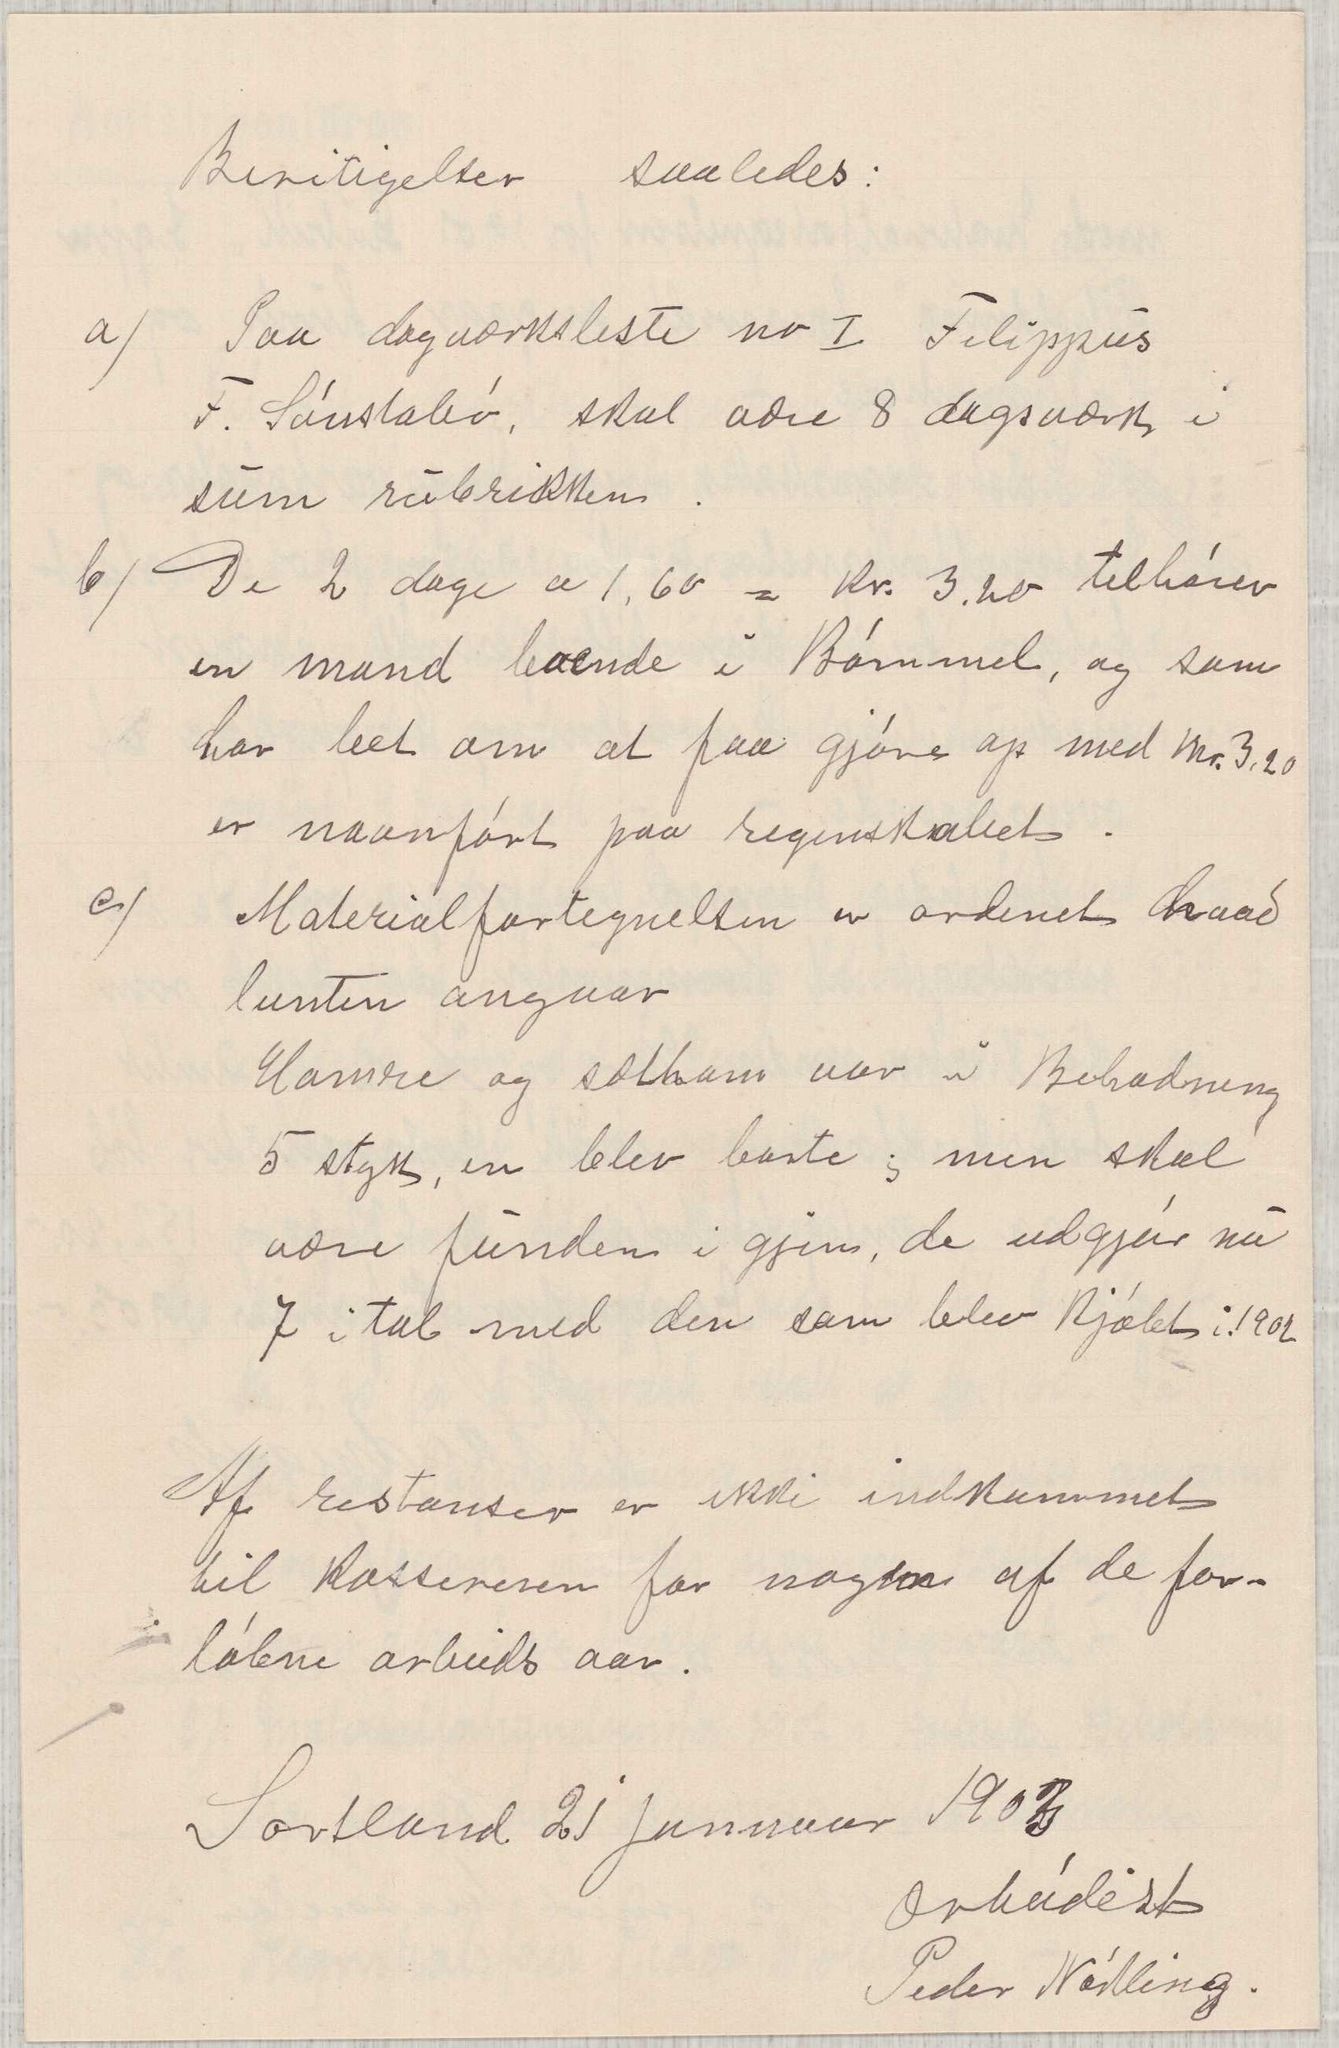 Beritigelser saaledes:
a) Paa dagværksleste no I Filippus
F. Sónstabó, skal være 8 dagsværk i
sum rubrikken.
b) De 2 dage a 1,60 = Kr. 3.20 telhórer
en mand boende i Bómmel, og som
har bet om at faa gjóre op med Kr. 3.20
er naanfórt paa regenskabet.
c) Materialfortegnelsen er ordenet hvad
lunten angaar
Hamre og sælham var i Behadning
5 styk, en blev borte; men skal
være funden i gjen, de udgjór nu
7 i tal med den som blev kjóbt i 1902
Af restanser er ikke indkommet
til Kassereren for nogen af de for-
lóbne arbeids aar.
Sortland 21 januar 1903
Ærbódist
Peder Nódling.